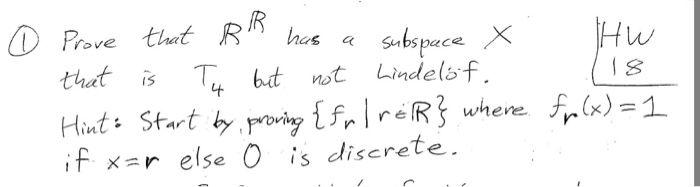 ① Prove that ℝ^ℝ has a subspace X
that is T₄ but not Lindelöf.
Hint: Start by proving {fᵣ | r∈ℝ} where fᵣ(x) = 1
if x=r else 0 is discrete.
HW
18